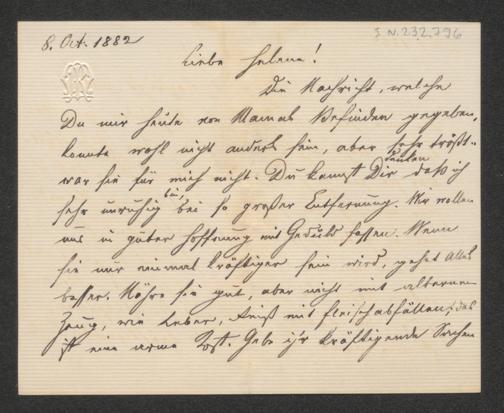 8. Oct. 1882
I.N. 232.796
Liebe Helene!
Die Nachricht, welche
Du mir heute von Mamas Befinden gegeben,
konnte wohl nicht anders sein, aber sehr tröst-
war sie für mich nicht. Du kannst Dir denken daß ich
sehr unruhig bin, bei so großer Entfernung. Wir wollen
uns in guter Hoffnung mit Geduld fassen. Wenn
sie nur einmal kräftiger sein wird, gehet alles
besser. Nähre sie gut, aber nicht mit albernem
Zeug, wie Leber, Reis mit Fleischabfällen; das
ist eine arme Kost. Gebe ihr kräftigende Sachen